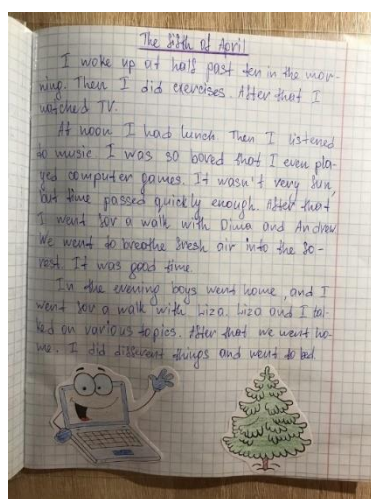 The fifth of April
I woke up at half past ten in the mor-
ning. Then I did exercises. After that I
watched TV.
At noon I had lunch. Then I listened
to music. I was so bored that I even pla-
yed computer games. It wasn't very fun,
but time passed quickly enough. After that
I went for a walk with Dima and Andrew.
We went to breathe fresh air into the fo-
rest. It was good time.
In the evening boys went home, and I
went for a walk with Liza. Liza and I tal-
ked on various topics. After that we went ho-
me. I did different things and went to bed.